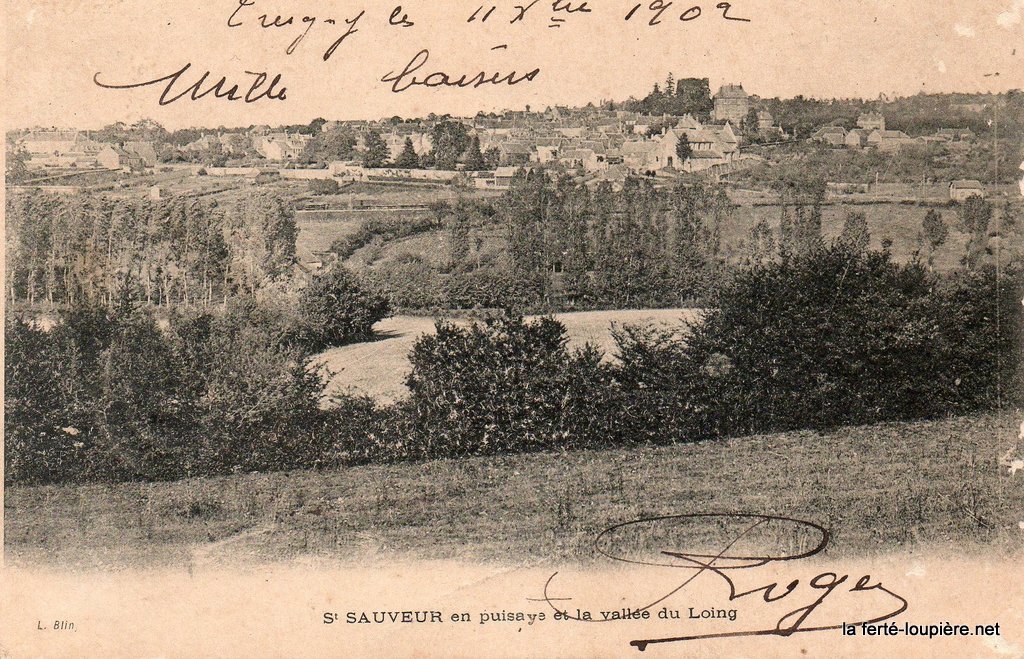 Treigny le 11 Xbre 1902
Mille baisers
Roger
L. Blin
St SAUVEUR en puisaye et la vallée du Loing
la ferté-loupière.net